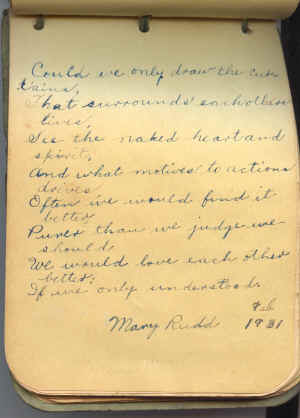 Could we only draw the cur-
tains,
That surrounds each other
lives,
See the naked heart and
spirit,
And what motives to actions
drives
Often we would find it
better
Purer than we judge we
should
We would love each other
better;
If we only understood.
Feb
Mary Rudd 1931